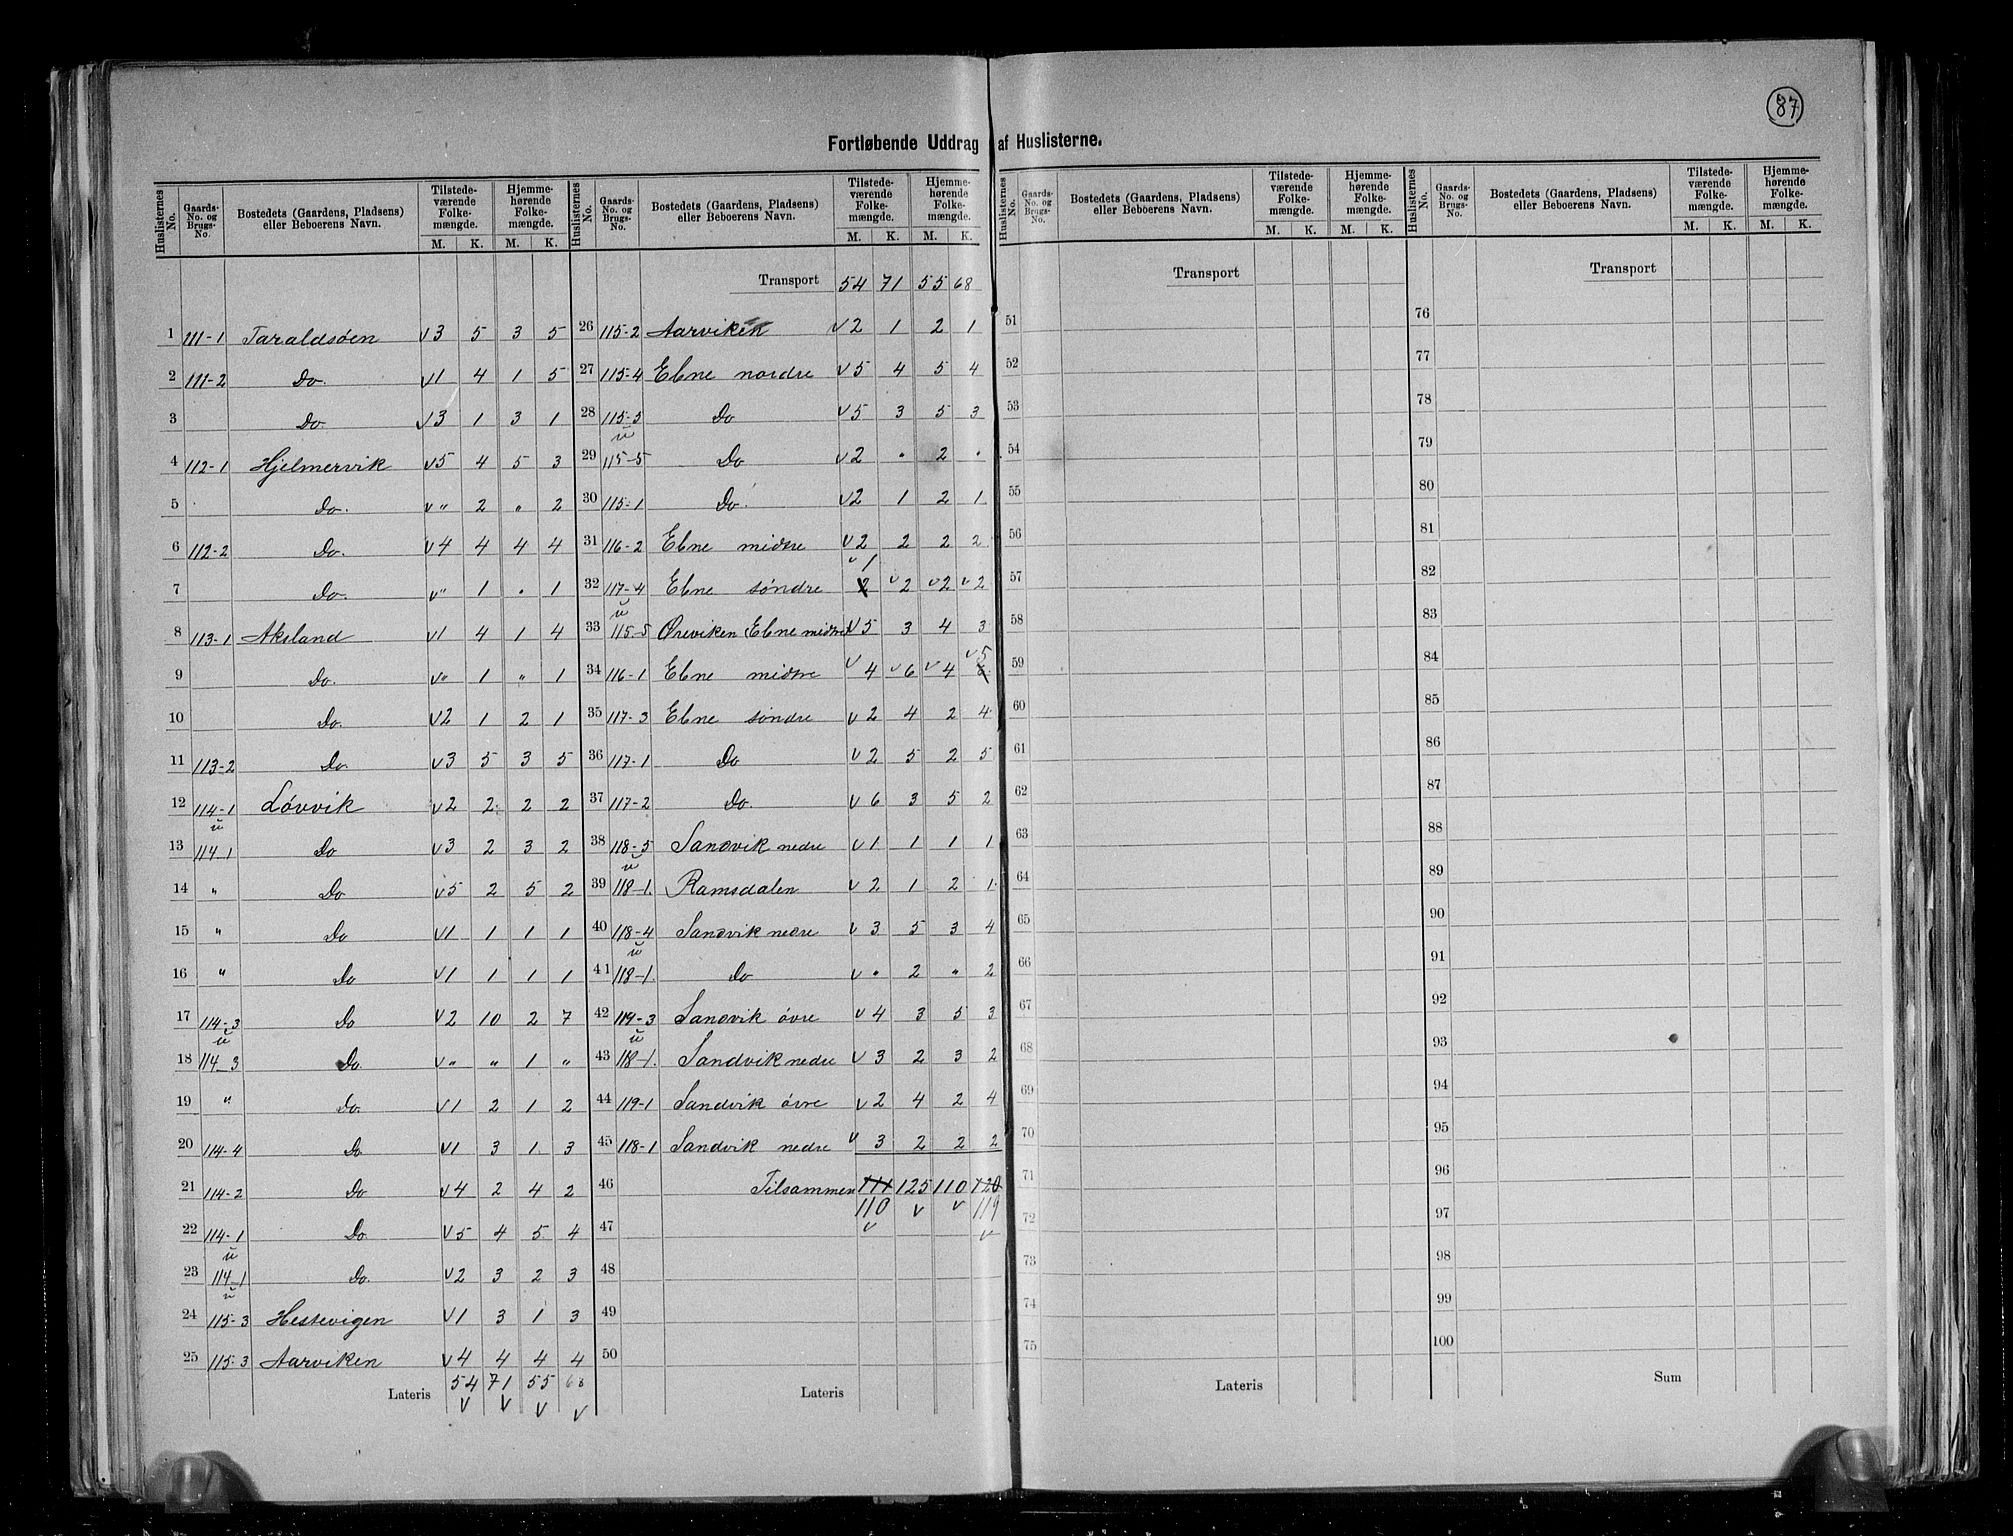 87
Fortløbende Uddrag af Huslisterne.
Huslisternes No. Gaards-No. og Brugs-No. Bostedets (Gaardens, Pladsens) eller Beboerens Navn. Tilstedeværende Folkemængde. M. K. Hjemmehørende Folkemængde. M. K.
1 111-1 Taraldsøen v3 5 3 5
2 111-2 Do. v1 4 1 5
3 Do. v3 1 3 1
4 112-1 Hjelmervik v5 4 5 3
5 Do. v " 2 " 2
6 112-2 Do. v4 4 4 4
7 Do. v " 1 " 1
8 113-1 Aksland v1 4 1 4
9 Do. v " 1 " 1
10 Do. v2 1 2 1
11 113-2 Do. v3 5 3 5
12 114-1 u Løvvik v2 2 2 2
13 114-1 Do v3 2 3 2
14 " Do v5 2 5 2
15 " Do v1 1 1 1
16 " Do v1 1 1 1
17 114-3 u Do v2 10 2 7
18 114-3 Do. v " " 1 "
19 " Do. v1 2 1 2
20 114-4 Do v1 3 1 3
21 114-2 Do v4 2 4 2
22 114-1 u Do v5 4 5 4
23 114-1 u Do. v2 3 2 3
24 115-3 Hestevigen v1 3 1 3
25 115-3 Aarviken v4 4 4 4
Lateris 54 71 55 68
v v v v
Huslisternes No. Gaards-No. og Brugs-No. Bostedets (Gaardens, Pladsens) eller Beboerens Navn. Tilstedeværende Folkemængde. M. K. Hjemmehørende Folkemængde. M. K.
Transport 54 71 55 68
26 115-2 Aarviken v2 1 2 1
27 115-4 Ebne nordre v5 4 5 4
28 115-5 u Do v5 3 5 3
29 115-5 Do v2 " 2 "
30 115-1 Do. v2 1 2 1
31 116-2 Ebne midtre v2 2 2 2
32 117-4 u Ebne søndre 2 v1 v2 v2 v2
33 115-5 Øreviken (Ebne midtre) v5 3 4 3
34 116-1 Ebne midtre v4 v6 v4 6 v5
35 117-3 Ebne søndre v2 4 2 4
36 117-1 Do v2 5 2 5
37 117-2 Do. v6 3 5 2
38 118-5 u Sandvik nedre v1 1 1 1
39 118-1. Ramsdalen v2 1 2 1
40 118-4 u Sandvik nedre v3 5 3 4
41 118-1. Do v " 2 " 2
42 119-3 u Sandvik øvre v4 3 5 3
43 118-1. Sandvik nedre v3 2 3 2
44 119-1 Sandvik øvre v2 4 2 4
45 118-1 Sandvik nedre v3 2 2 2
46 Tilsammen 111 125 110 120
110 v v 119
47 v v
48
49
50
Lateris
Huslisternes No. Gaards-No. og Brugs-No. Bostedets (Gaardens, Pladsens) eller Beboerens Navn. Tilstedeværende Folkemængde. M. K. Hjemmehørende Folkemængde. M. K.
Transport
51
52
53
54
55
56
57
58
59
60
61
62
63
64
65
66
67
68
69
70
71
72
73
74
75
Lateris
Huslisternes No. Gaards-No. og Brugs-No. Bostedets (Gaardens, Pladsens) eller Beboerens Navn. Tilstedeværende Folkemængde. M. K. Hjemmehørende Folkemængde. M. K.
Transport
76
77
78
79
80
81
82
83
84
85
86
87
88
89
90
91
92
93
94
95
96
97
98
99
100
Sum